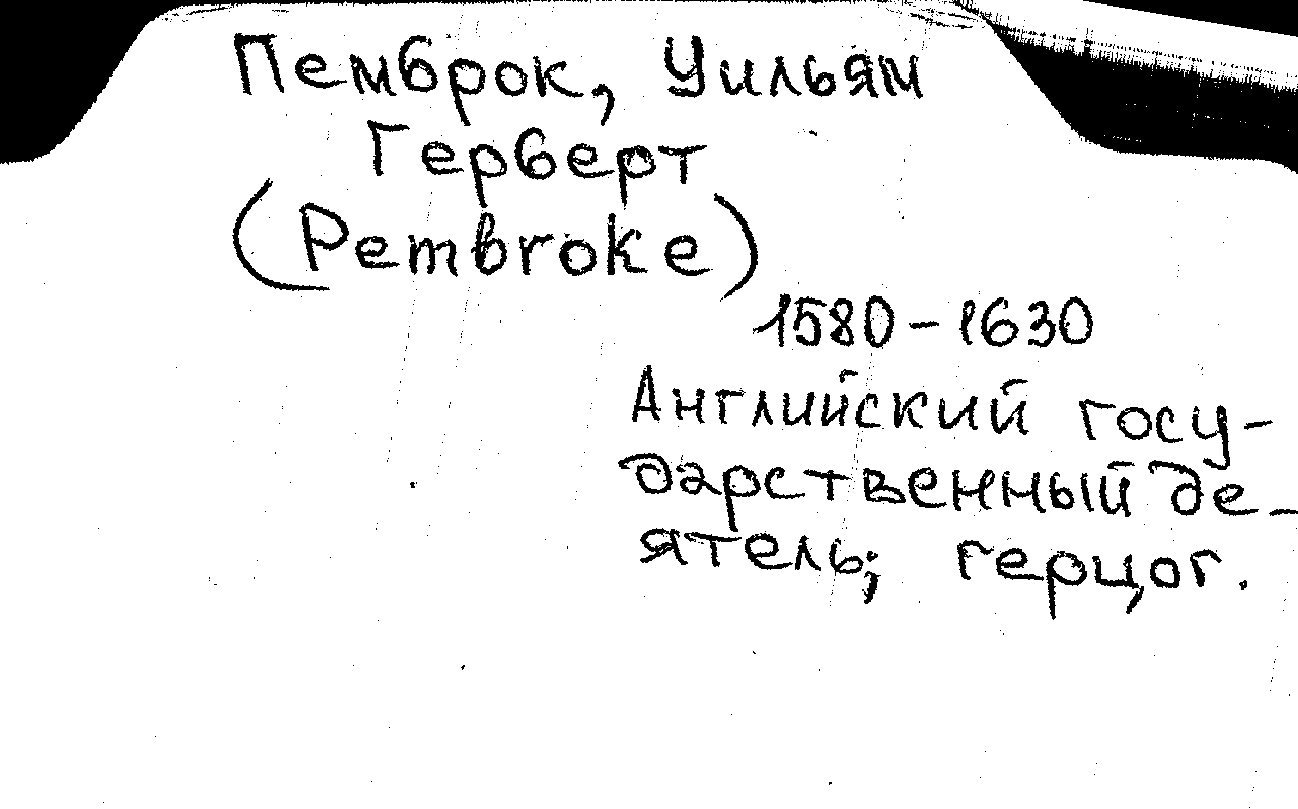 Пемброк, Уильям
Герберт
(Pembroke)
1580-1630
Английский госу-
дарственный де-
ятель; герцог.